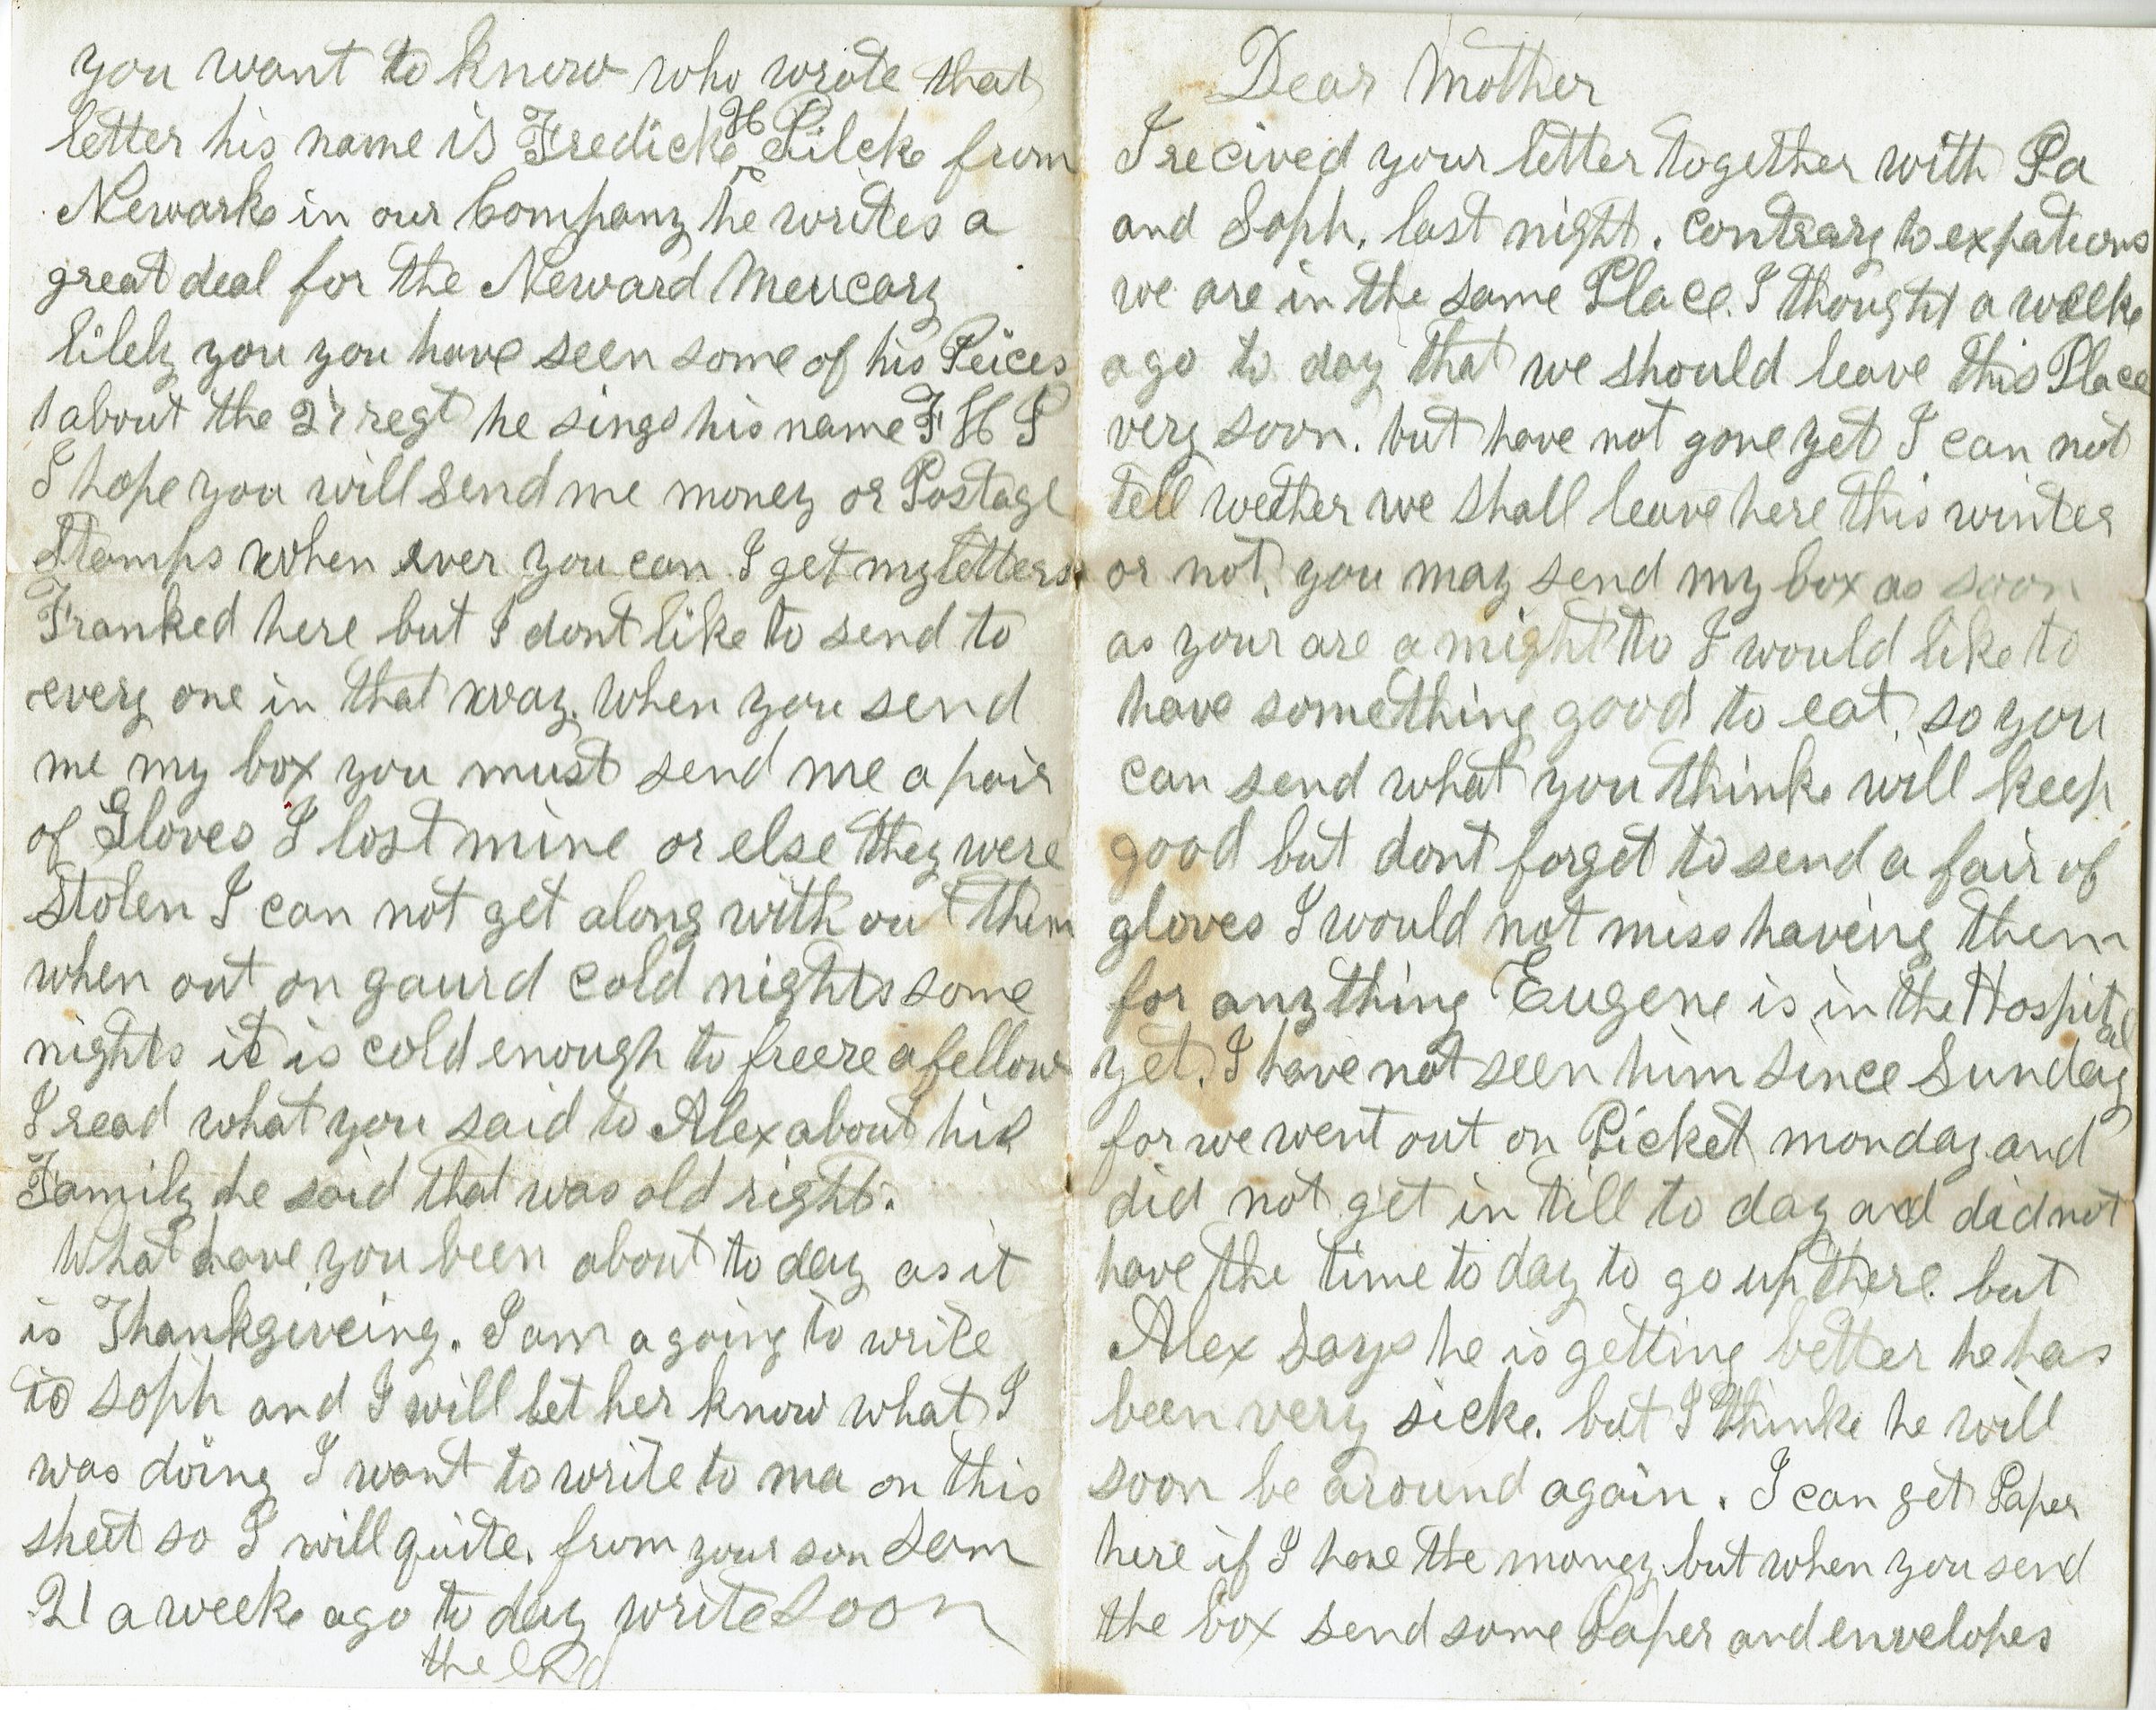 you want to know who wrote that
letter his name is Fredick H Pilck from
Newark in our Company he writes a
great deal for the Neward Meucary
likly you you have seen some of his Peices
about the 27 regt he sings his name F H P
I hope you will send me money or Postage
Stamps when ever you can I get my letters
Franked here but I dont like to send to
every one in that way. when you send
me my box you must send me a pair
of Gloves I lost mine or else they were
stolen I can not get along with out them
when out on gaurd cold nights some
nights it is cold enough to freeze a fellow
I read what you said to Alex about his
Family he said that was old right.
What have you been about to day as it
is Thankgiveing. I am a going to write
to soph and I will let her know what I
was doing I want to write to ma on this
sheet so I will quite. from your son Sam
21 a week ago to day write soon
the end
Dear Mother
I recived your letter together with Pa
and Soph. last night. contrary to expations
we are in the same Place. I thought a week
ago to day that we should leave this Place
very soon. but have not gone yet I can not
tell wether we shall leave here this winter
or not, you may send my box as soon
as your are a might to I would like to
have something good to eat, so you
can send what you think will keep
good but dont forget to send a fair of
gloves I would not miss haveing them
for any thing Eugene is in the Hospital
yet. I have not seen him since Sunday
for we went out on Picket monday and
did not get in till to day and did not
have the time to day to go up there. but
Alex says he is getting better he has
been very sick. but I think he will
soon be around again. I can get Paper
here if I have the money but when you send
the box send some Paper and envelopes